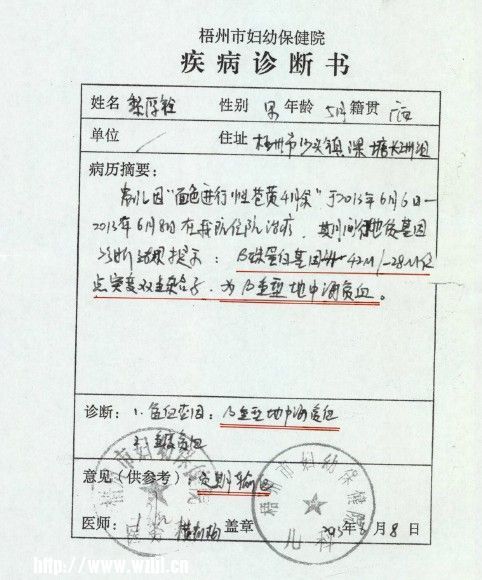 梧州市妇幼保健院
疾病诊断书
姓名 性别 男 年龄 5月 籍贯 广西
单位 / 住址 梧州市 镇 组
病历摘要：
患儿因“面色进行性苍黄4月余”于2013年6月6日—
2013年6月8日在我院住院治疗，其间行地贫基因
诊断结果提示：β珠蛋白基因 42M/-28M位
点突变双重杂合子，为β重型地中海贫血。
诊断：1. 贫血 ：β重型地中海贫血
2. 贫血
意见（供参考） 定期输血
医师： 盖章 2013年6月8日
梧州市妇幼保健院
梧州市妇幼保健院
儿科
http://www.wzljl.cn